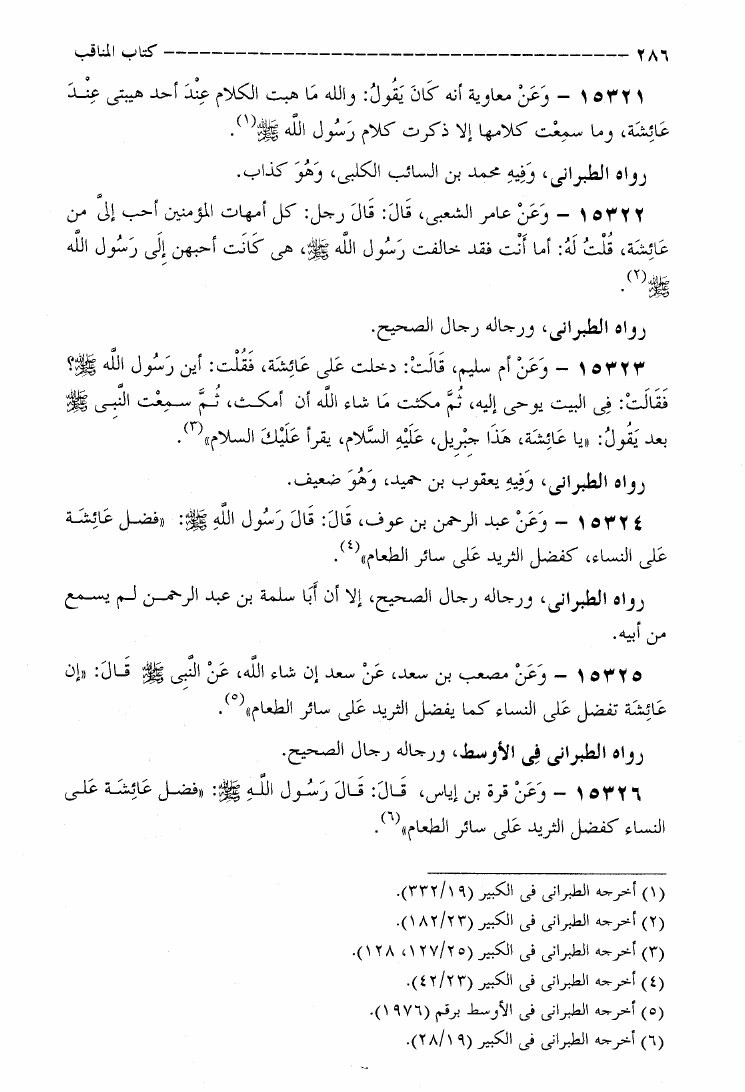 ٢٨٦ ------------------------------------ كتاب المناقب
١٥٣٢١ – وَعَنْ معاوية أنه كَانَ يَقُولُ: والله مَا هبت الكلام عِنْدَ أحد هيبتى عِنْدَ
عَائِشَة، وما سمِعْت كلامها إلا ذكرت كلام رَسُول اللَّه ﷺ(١).
رواه الطبرانى، وَفِيهِ محمد بن السائب الكلبى، وَهُوَ كذاب.
١٥٣٢٢ – وَعَنْ عامر الشعبى، قَالَ: قَالَ رجل: كل أمهات المؤمنين أحب إلىَّ من
عَائِشَة، قُلْتُ لَهُ: أما أَنْت فقد خالفت رَسُول اللَّه ﷺ، هى كَانَت أحبهن إِلَى رَسُول اللَّه
ﷺ(٢).
رواه الطبرانى، ورجاله رجال الصحيح.
١٥٣٢٣ – وَعَنْ أم سليم، قَالَتْ: دخلت عَلى عَائِشَة، فَقُلْت: أين رَسُول اللَّه ﷺ؟
فَقَالَتْ: فِى البيت يوحى إليه، ثُمَّ مكثت مَا شاء اللَّه أن أمكث، ثُمَّ سمِعْت النَّبِى ﷺ
بعد يَقُولُ: «يا عَائِشَة، هَذَا جِبْرِيل، عَلَيْهِ السَّلام، يقرأ عَلَيْكَ السلام»(٣).
رواه الطبرانى، وَفِيهِ يعقوب بن حميد، وَهُوَ ضعيف.
١٥٣٢٤ – وَعَنْ عبد الرحمن بن عوف، قَالَ: قَالَ رَسُول اللَّهِ ﷺ: «فضل عَائِشَة
عَلى النساء، كفضل الثريد عَلى سائر الطعام»(٤).
رواه الطبرانى، ورجاله رجال الصحيح، إلا أن أَبَا سلمة بن عبد الرحمن لم يسمع
من أبيه.
١٥٣٢٥ – وَعَنْ مصعب بن سعد، عَنْ سعد إن شاء اللَّه، عَنْ النَّبِى ﷺ قَالَ: «إن
عَائِشَة تفضل عَلى النساء كما يفضل الثريد عَلى سائر الطعام»(٥).
رواه الطبرانى فِى الأوسط، ورجاله رجال الصحيح.
١٥٣٢٦ – وَعَنْ قرة بن إياس، قَالَ: قَالَ رَسُول اللَّهِ ﷺ: «فضل عَائِشَة عَلى
النساء كفضل الثريد عَلى سائر الطعام»(٦).
(١) أخرجه الطبرانى فى الكبير (٣٣٢/١٩).
(٢) أخرجه الطبرانى فى الكبير (١٨٢/٢٣).
(٣) أخرجه الطبرانى فى الكبير (١٢٧/٢٥، ١٢٨).
(٤) أخرجه الطبرانى فى الكبير (٤٢/٢٣).
(٥) أخرجه الطبرانى فى الأوسط برقم (١٩٧٦).
(٦) أخرجه الطبرانى فى الكبير (٢٨/١٩).